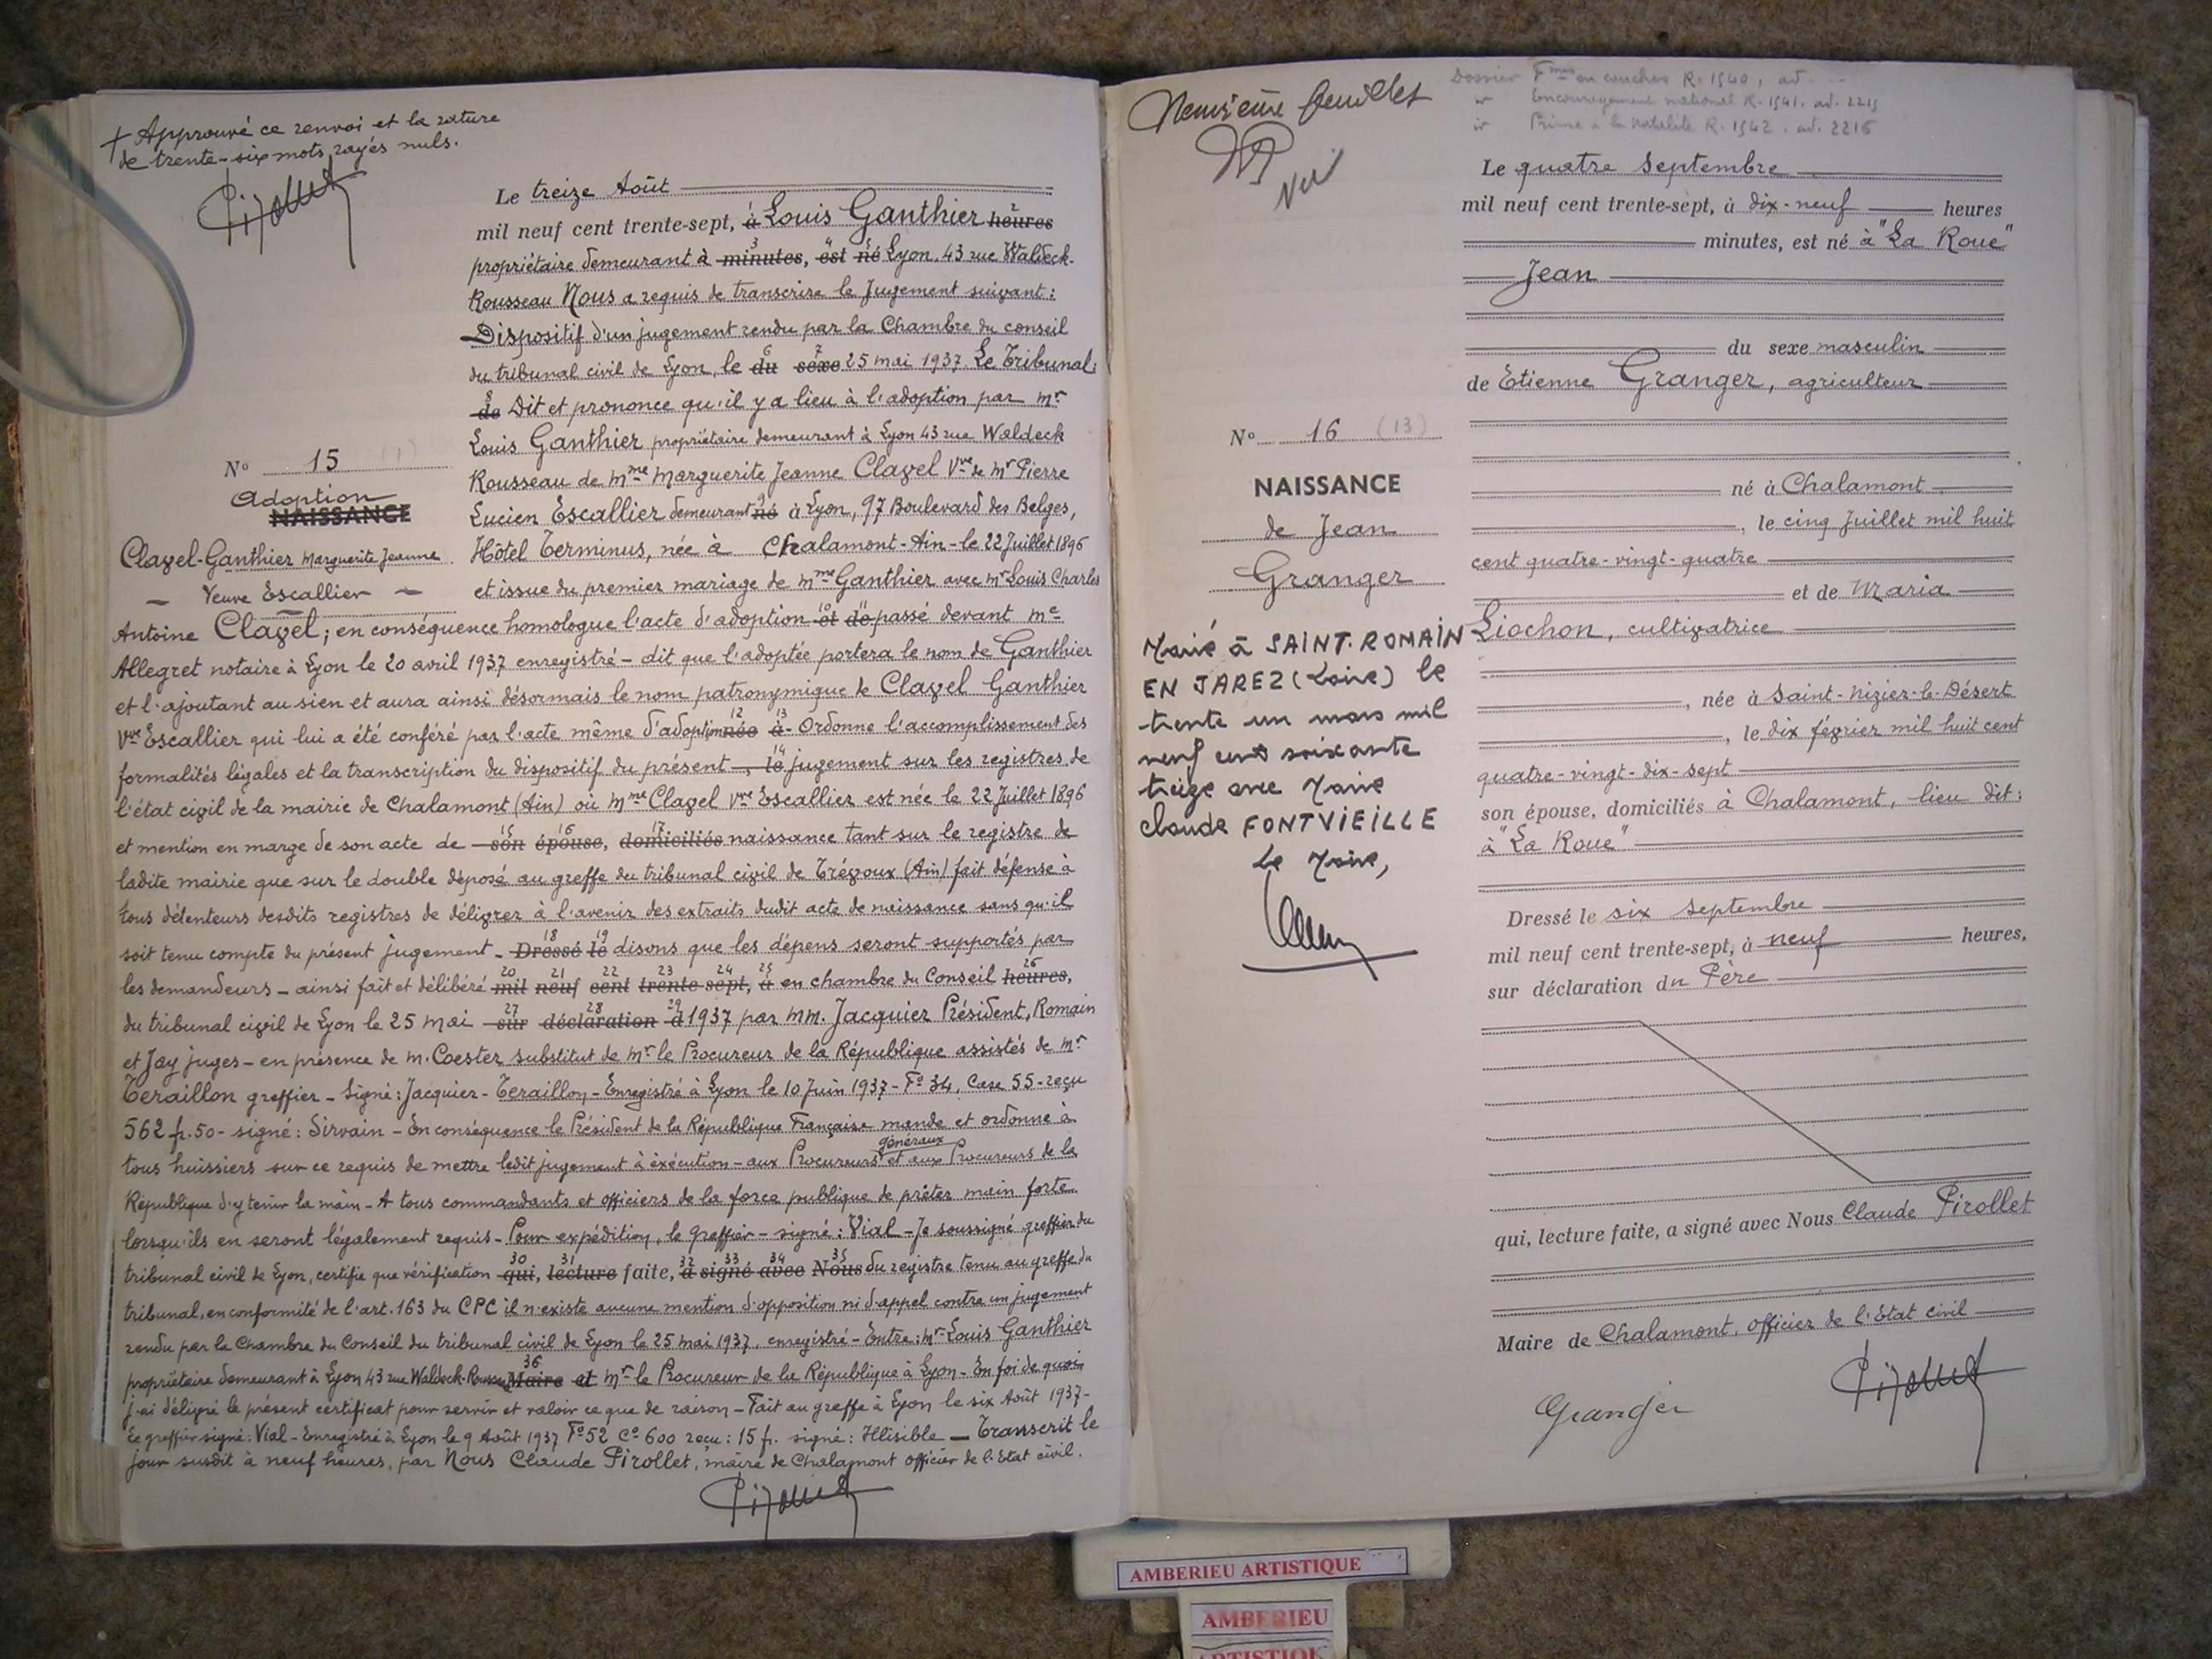 + Approuvé ce renvoi et la rature
de trente-six mots rayés nuls.
Pirollet
Le treize Août
mil neuf cent trente-sept, à Louis Ganthier heures
propriétaire demeurant à minutes, est né Lyon, 43 rue Waldeck-
Rousseau Nous a requis de transcrire le Jugement suivant :
Dispositif d'un jugement rendu par la Chambre du conseil
du tribunal civil de Lyon, le du sexe 25 mai 1937. Le Tribunal
de Dit et prononce qu'il y a lieu à l'adoption par mr
Louis Ganthier propriétaire demeurant à Lyon 43 rue Waldeck
Rousseau de mme Marguerite Jeanne Clavel Vve de mr Pierre
Lucien Escallier demeurant né à Lyon, 97 Boulevard des Belges,
Hôtel Terminus, née à Chalamont-Ain-le 22 Juillet 1896
et issue du premier mariage de mme Ganthier avec mr Louis Charles
N° 15 (1)
Adoption
NAISSANCE
Clavel-Ganthier Marguerite Jeanne
- Veuve Escallier -
Antoine Clavel; en conséquence homologue l'acte d'adoption et de passé devant me
Allegret notaire à Lyon le 20 avril 1937 enregistré - dit que l'adoptée portera le nom de Ganthier
et l'ajoutant au sien et aura ainsi désormais le nom patronymique de Clavel Ganthier
Vve Escallier qui lui a été conféré par l'acte même d'adoption née à - Ordonne l'accomplissement des
formalités légales et la transcription du dispositif du présent , le jugement sur les registres de
l'état civil de la mairie de Chalamont (Ain) où mme Clavel Vve Escallier est née le 22 Juillet 1896
et mention en marge de son acte de son épouse, domiciliés naissance tant sur le registre de
ladite mairie que sur le double déposé au greffe du tribunal civil de Trévoux (Ain) fait défense à
tous détenteurs desdits registres de délivrer à l'avenir des extraits dudit acte de naissance sans qu'il
soit tenu compte du présent jugement - Dressé le disons que les dépens seront supportés par
les demandeurs - ainsi fait et délibéré mil neuf cent trente sept, à en chambre du Conseil heures,
du tribunal civil de Lyon le 25 mai sur déclaration d 1937 par mm. Jacquier Président, Romain
et Jay juges - en présence de m. Coester substitut de mr le Procureur de la République assistés de mr
Teraillon greffier - Signé : Jacquier - Teraillon - Enregistré à Lyon le 10 Juin 1937 - F° 34, Case 55 - reçu
562 fr. 50 - signé : Sirvain - En conséquence le Président de la République Française mande et ordonne à
tous huissiers sur ce requis de mettre ledit jugement à exécution - aux Procureurs généraux et aux Procureurs de la
République d'y tenir la main - A tous commandants et officiers de la force publique de prêter main forte
lorsqu'ils en seront légalement requis - Pour expédition, le greffier - signé : Vial - Je soussigné greffier du
tribunal civil de Lyon, certifie que vérification qui, lecture faite, a signé avec Nous du registre tenu au greffe du
tribunal, en conformité de l'art. 163 du CPC il n'existe aucune mention d'opposition ni d'appel contre un jugement
rendu par la Chambre du Conseil du tribunal civil de Lyon le 25 mai 1937, enregistré - Entre : mr Louis Ganthier
propriétaire demeurant à Lyon 43 rue Waldeck-Rousseau Maire et mr le Procureur de la République à Lyon - En foi de quoi
j'ai délivré le présent certificat pour servir et valoir ce que de raison - Fait au greffe à Lyon le six Août 1937 -
Le greffier signé : Vial - Enregistré à Lyon le 9 Août 1937 F° 52 Ce 600 reçu : 15 fr. signé : Illisible - Transcrit le
jour susdit à neuf heures, par Nous Claude Pirollet, maire de Chalamont officier de l'Etat civil.
Pirollet
Neuvième feuillet
Dossier Fmes en couches R. 1940, ad.
Encouragement national R. 1941. ad. 2215
Prime à la Natalité R. 1942. ad. 2216
Le quatre Septembre
mil neuf cent trente-sept, à dix-neuf heures
minutes, est né à "La Roue"
Jean
du sexe masculin
de Etienne Granger, agriculteur
N° 16 (13)
NAISSANCE
de Jean
Granger
né à Chalamont
, le cinq Juillet mil huit
cent quatre-vingt-quatre
et de Maria
Liochon, cultivatrice
, née à Saint-Nizier-le-Désert
, le dix février mil huit cent
quatre-vingt-dix-sept
son épouse, domiciliés à Chalamont, lieu dit :
à "La Roue"
Marié à SAINT-ROMAIN
EN JAREZ (Loire) le
trente un mars mil
neuf cent soixante
treize avec Marie
Claude FONTVIEILLE
Le Maire,
Dressé le six Septembre
mil neuf cent trente-sept, à neuf heures,
sur déclaration du Père
qui, lecture faite, a signé avec Nous Claude Pirollet
Maire de Chalamont, officier de l'Etat civil
Granger
Pirollet
AMBERIEU ARTISTIQUE
AMBERIEU
ARTISTIQUE